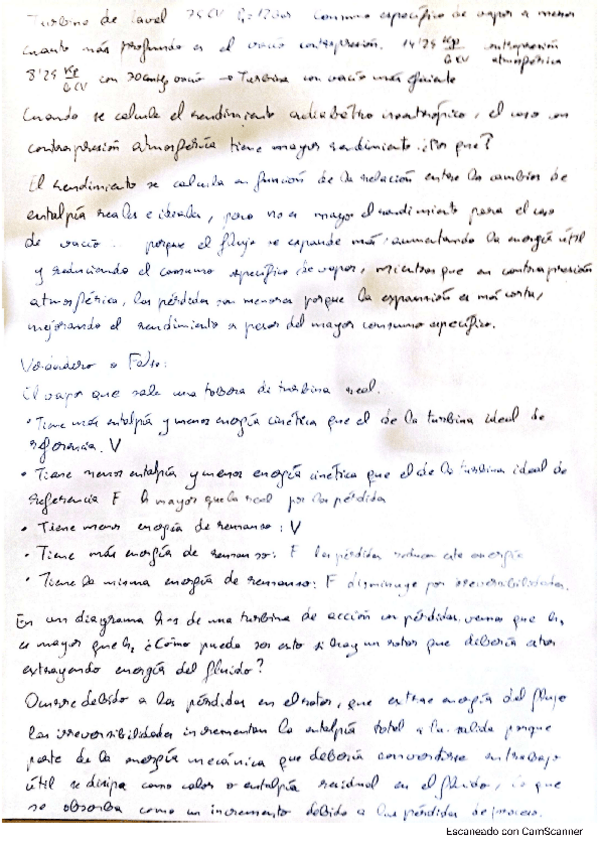 Turbina de Laval 75 CV Consumo específico de vapor es menor
cuanto más profundo es el vacío contrapresión. 14'25 Kg/h CV contrapresión atmosférica
8'25 con vacío → Turbina con vacío más
Cuando se calcula el rendimiento adiabático isoentrópico, el caso con
contrapresión atmosférica tiene mayor rendimiento. ¿Por qué?
El rendimiento se calcula en función de la relación entre los cambios de
entalpía reales e ideales, pero no es mayor el rendimiento para el caso
de vacío porque el flujo se expande más aumentando la energía útil
y reduciendo el consumo específico de vapor, mientras que en contrapresión
atmosférica, las pérdidas son menores porque la expansión es más corta,
mejorando el rendimiento a pesar del mayor consumo específico.
Verdadero o Falso:
El vapor que sale una tobera de turbina real.
• Tiene más entalpía y menos energía cinética que el de la turbina ideal de
referencia. V
• Tiene menos entalpía y menos energía cinética que el de la turbina ideal de
referencia F h mayor que la real por las pérdidas
• Tiene menos energía de remanso: V
• Tiene más energía de remanso: F las pérdidas reducen esta energía
• Tiene la misma energía de remanso: F disminuye por irreversibilidades.
En un diagrama h-s de una turbina de acción con pérdidas, vemos que h
es mayor que h, ¿Cómo puede ser esto si hay un rotor que debería estar
extrayendo energía del fluido?
Ocurre debido a las pérdidas en el rotor, que extrae energía del flujo
las irreversibilidades incrementan la entalpía total a la salida porque
parte de la energía mecánica que debería convertirse en trabajo
útil se disipa como calor o entalpía residual en el fluido, lo que
se observa como un incremento debido a las pérdidas de proceso.
Escaneado con CamScanner